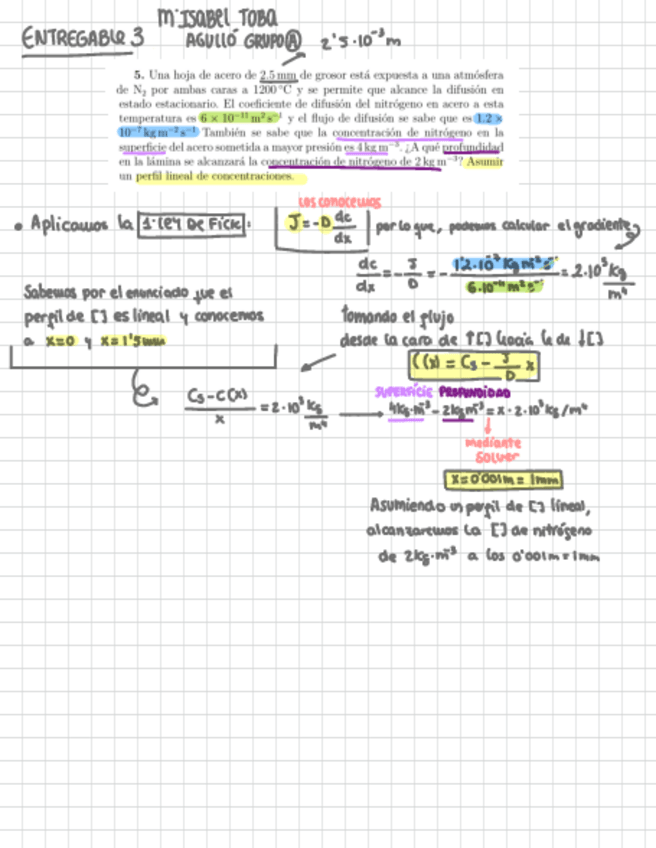 ENTREGABLE 3
Mª ISABEL TOBA
AGULLÓ GRUPO A
2'5·10⁻³ m
5. Una hoja de acero de 2.5 mm de grosor está expuesta a una atmósfera
de N₂ por ambas caras a 1200 °C y se permite que alcance la difusión en
estado estacionario. El coeficiente de difusión del nitrógeno en acero a esta
temperatura es 6 × 10⁻¹¹ m² s⁻¹ y el flujo de difusión se sabe que es 1.2 ×
10⁻⁷ kg m⁻² s⁻¹ También se sabe que la concentración de nitrógeno en la
superficie del acero sometida a mayor presión es 4 kg m⁻³. ¿A qué profundidad
en la lámina se alcanzará la concentración de nitrógeno de 2 kg m⁻³? Asumir
un perfil lineal de concentraciones.
Los conocemos
• Aplicamos la 1ª LEY DE FICK: J = -D dc/dx por lo que, podemos calcular el gradiente
dc/dx = - J/D = - 1'2·10⁻⁷ Kg m⁻² s⁻¹ / 6·10⁻¹¹ m² s⁻¹ = 2·10³ kg/m⁴
Sabemos por el enunciado que el
perfil de [] es lineal y conocemos
a x=0 y x=1'5mm
tomando el flujo
desde la cara de ↑[] hacia la de ↓[]
C(x) = Cs - J/D x
Cs - C(x) / x = 2·10³ kg/m⁴
SUPERFICIE PROFUNDIDAD
4kg·m⁻³ - 2kg m⁻³ = x · 2·10³ kg/m⁴
mediante
solver
x = 0'001m = 1mm
Asumiendo un perfil de [] líneal,
alcanzaremos la [] de nitrógeno
de 2kg·m⁻³ a los 0'001m = 1mm